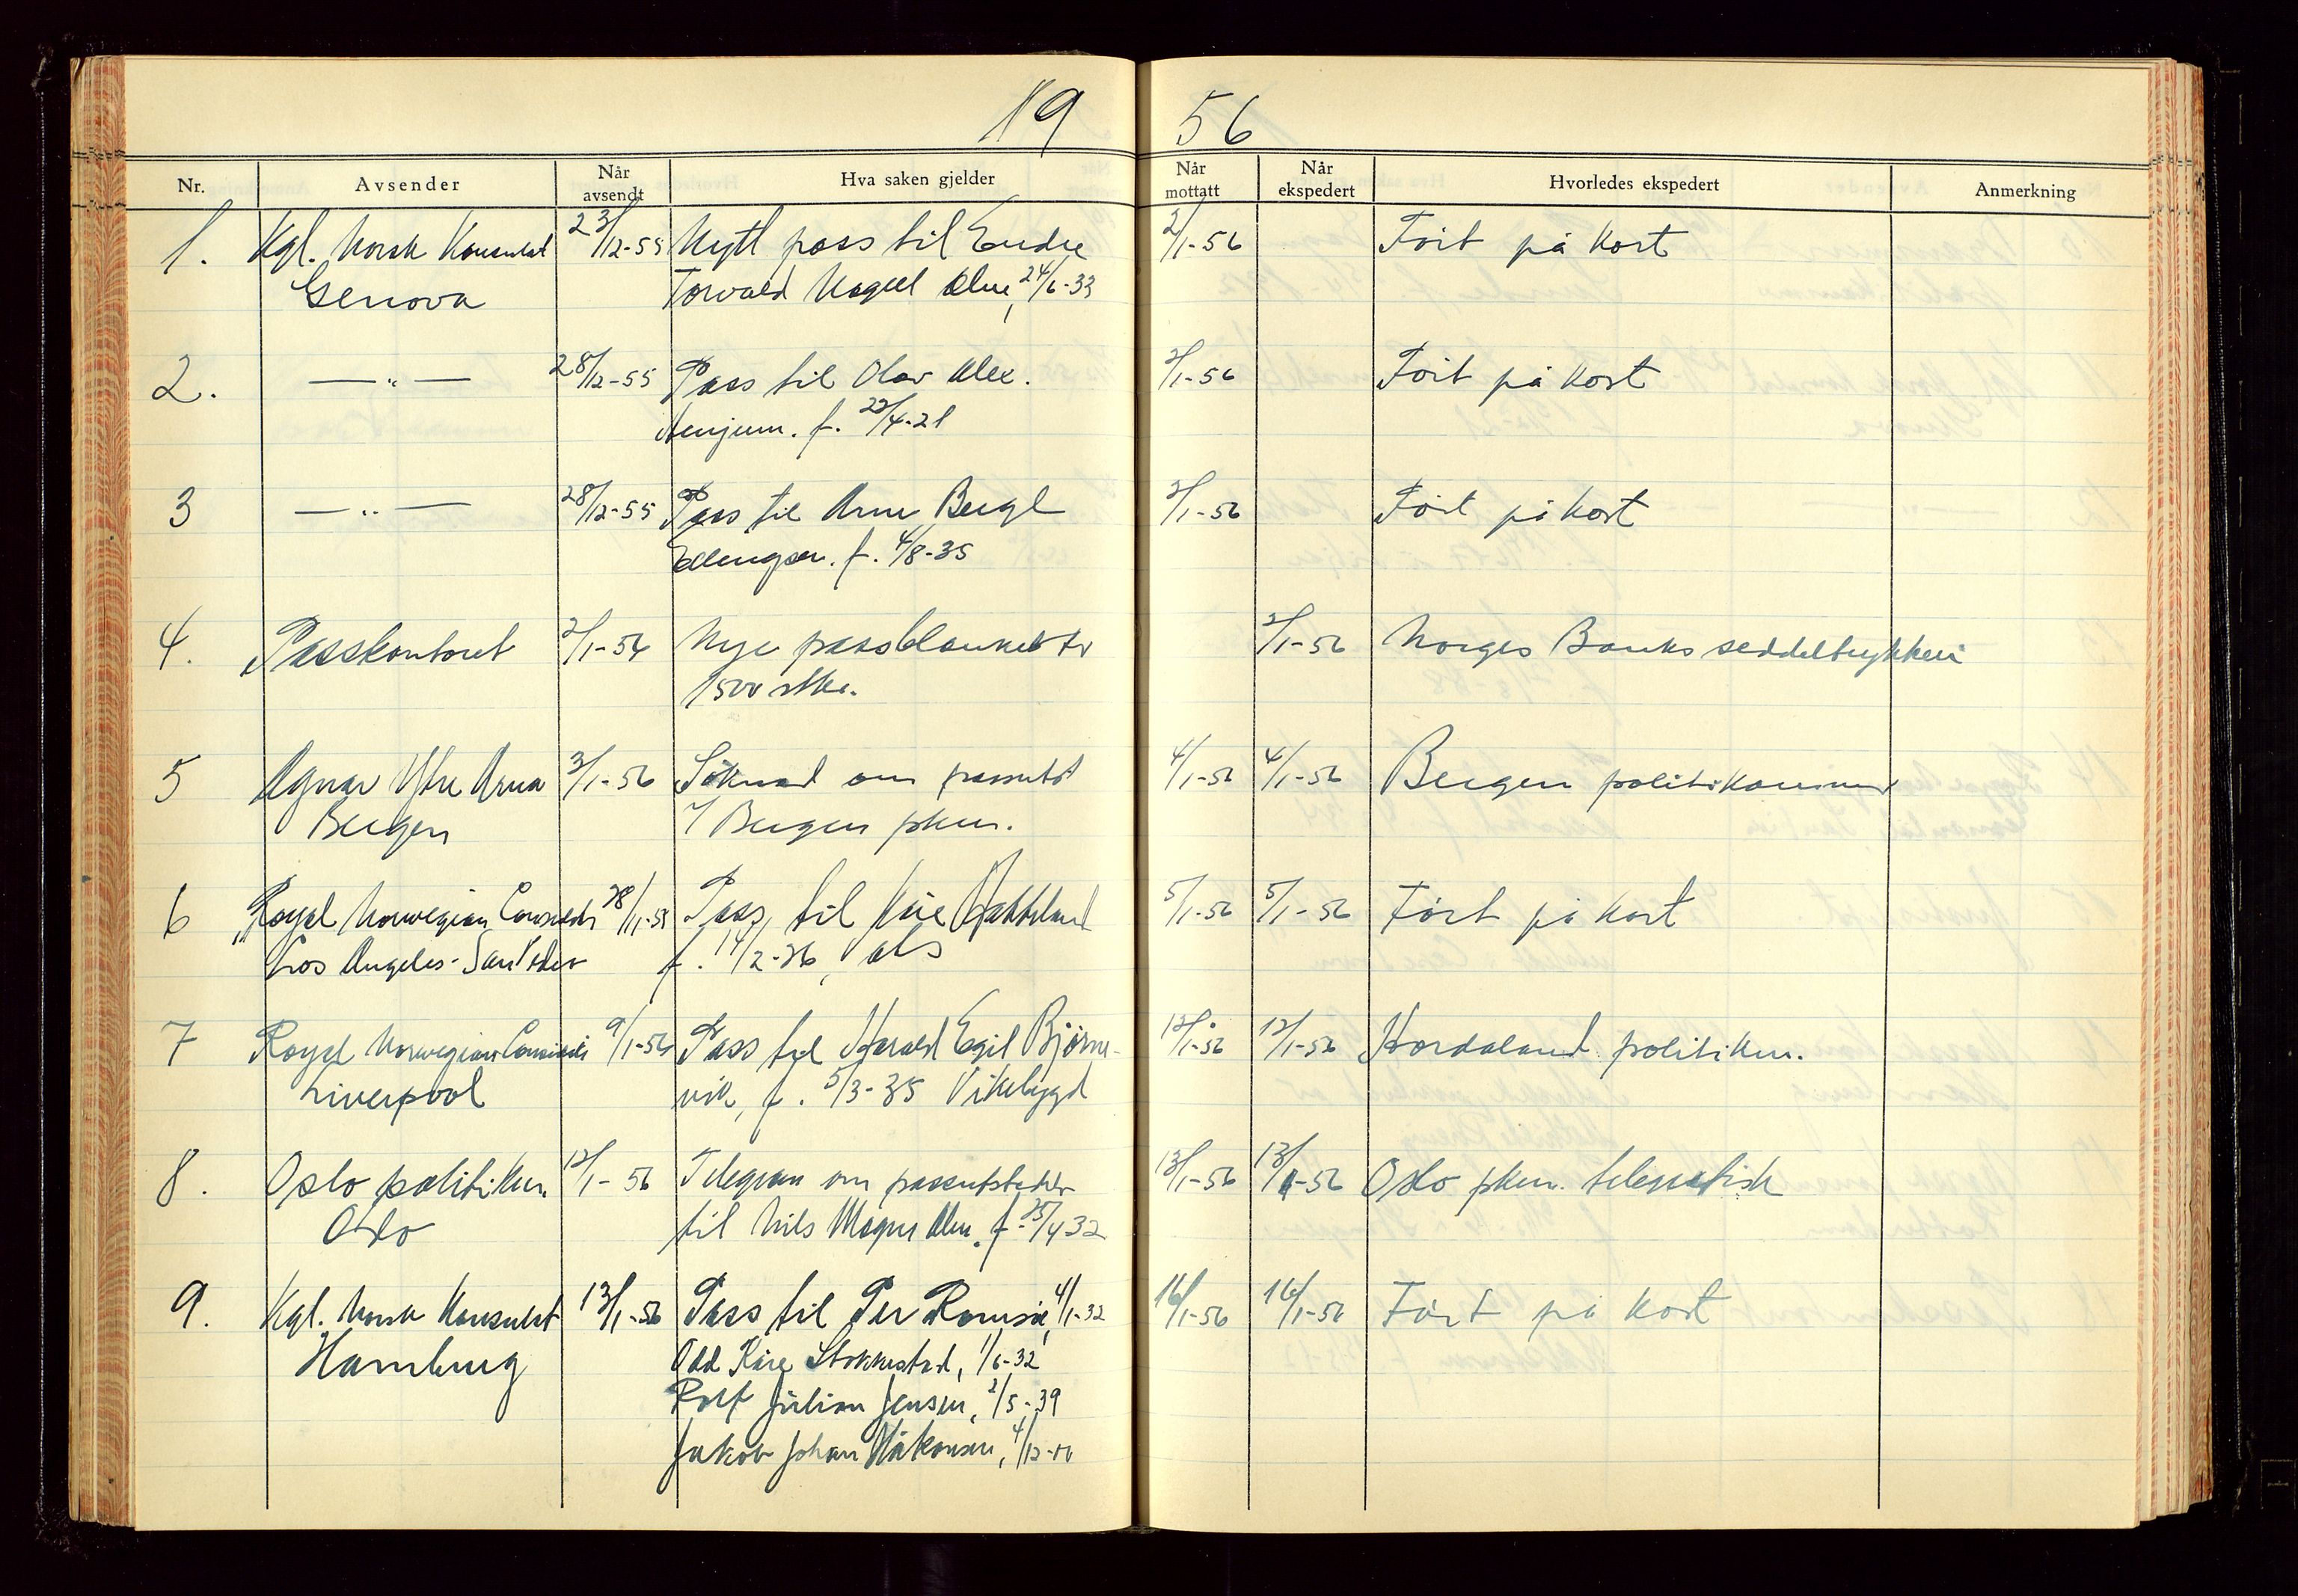 19 56
Nr. Avsender Når avsendt Hva saken gjelder Når mottatt Når ekspedert Hvorledes ekspedert Anmerkning
1. Kgl. Norsk Konsulat 23/12-55 Nytt pass til Endre 2/1-56 Ført på kort
Genova Torvald Magul Alme, 24/6-33
2. —„— 28/12-55 Pass til Olav Alex. 2/1-56 Ført på kort
Henjum. f. 22/4-21
3 —„— 28/12-55 Pass til Arne Bergl 2/1-56 Ført på kort
Ellingsen. f. 4/8-35
4. Passkontoret 2/1-56 Nye passblanketter 2/1-56 Norges Banks seddeltrykkeri
1500 stkr.
5 Agnar Ytre Arna 3/1-56 Søknad om passutst 4/1-56 4/1-56 Bergen politikammer
Bergen / Bergen pkm.
6 Royal Norwegian Consulate 28/11-55 Pass til Kåre 5/1-56 5/1-56 Ført på kort
Los Angeles - San Pedro f. 14/2-36,
7 Royal Norwegian Consulate 9/1-56 Pass til Harald Egil Bjørne- 12/1-56 12/1-56 Hordaland politikm.
Liverpool vik, f. 5/3-35 Vikebygd
8. Oslo politikm. 12/1-56 Telegram om passutstedelse 13/1-56 13/1-56 Oslo pkm.
Oslo til Nils Magne Alm. f. 25/4 32
9. Kgl. Norsk Konsulat 13/1-56 Pass til Per Romsø, 4/1-32 16/1-56 16/1-56 Ført på kort
Hamburg Odd Kåre Stokkestad, 1/6-32
Rolf Julian Jensen, 2/5-39
Jakob Johan Håkonsen, 4/12-00